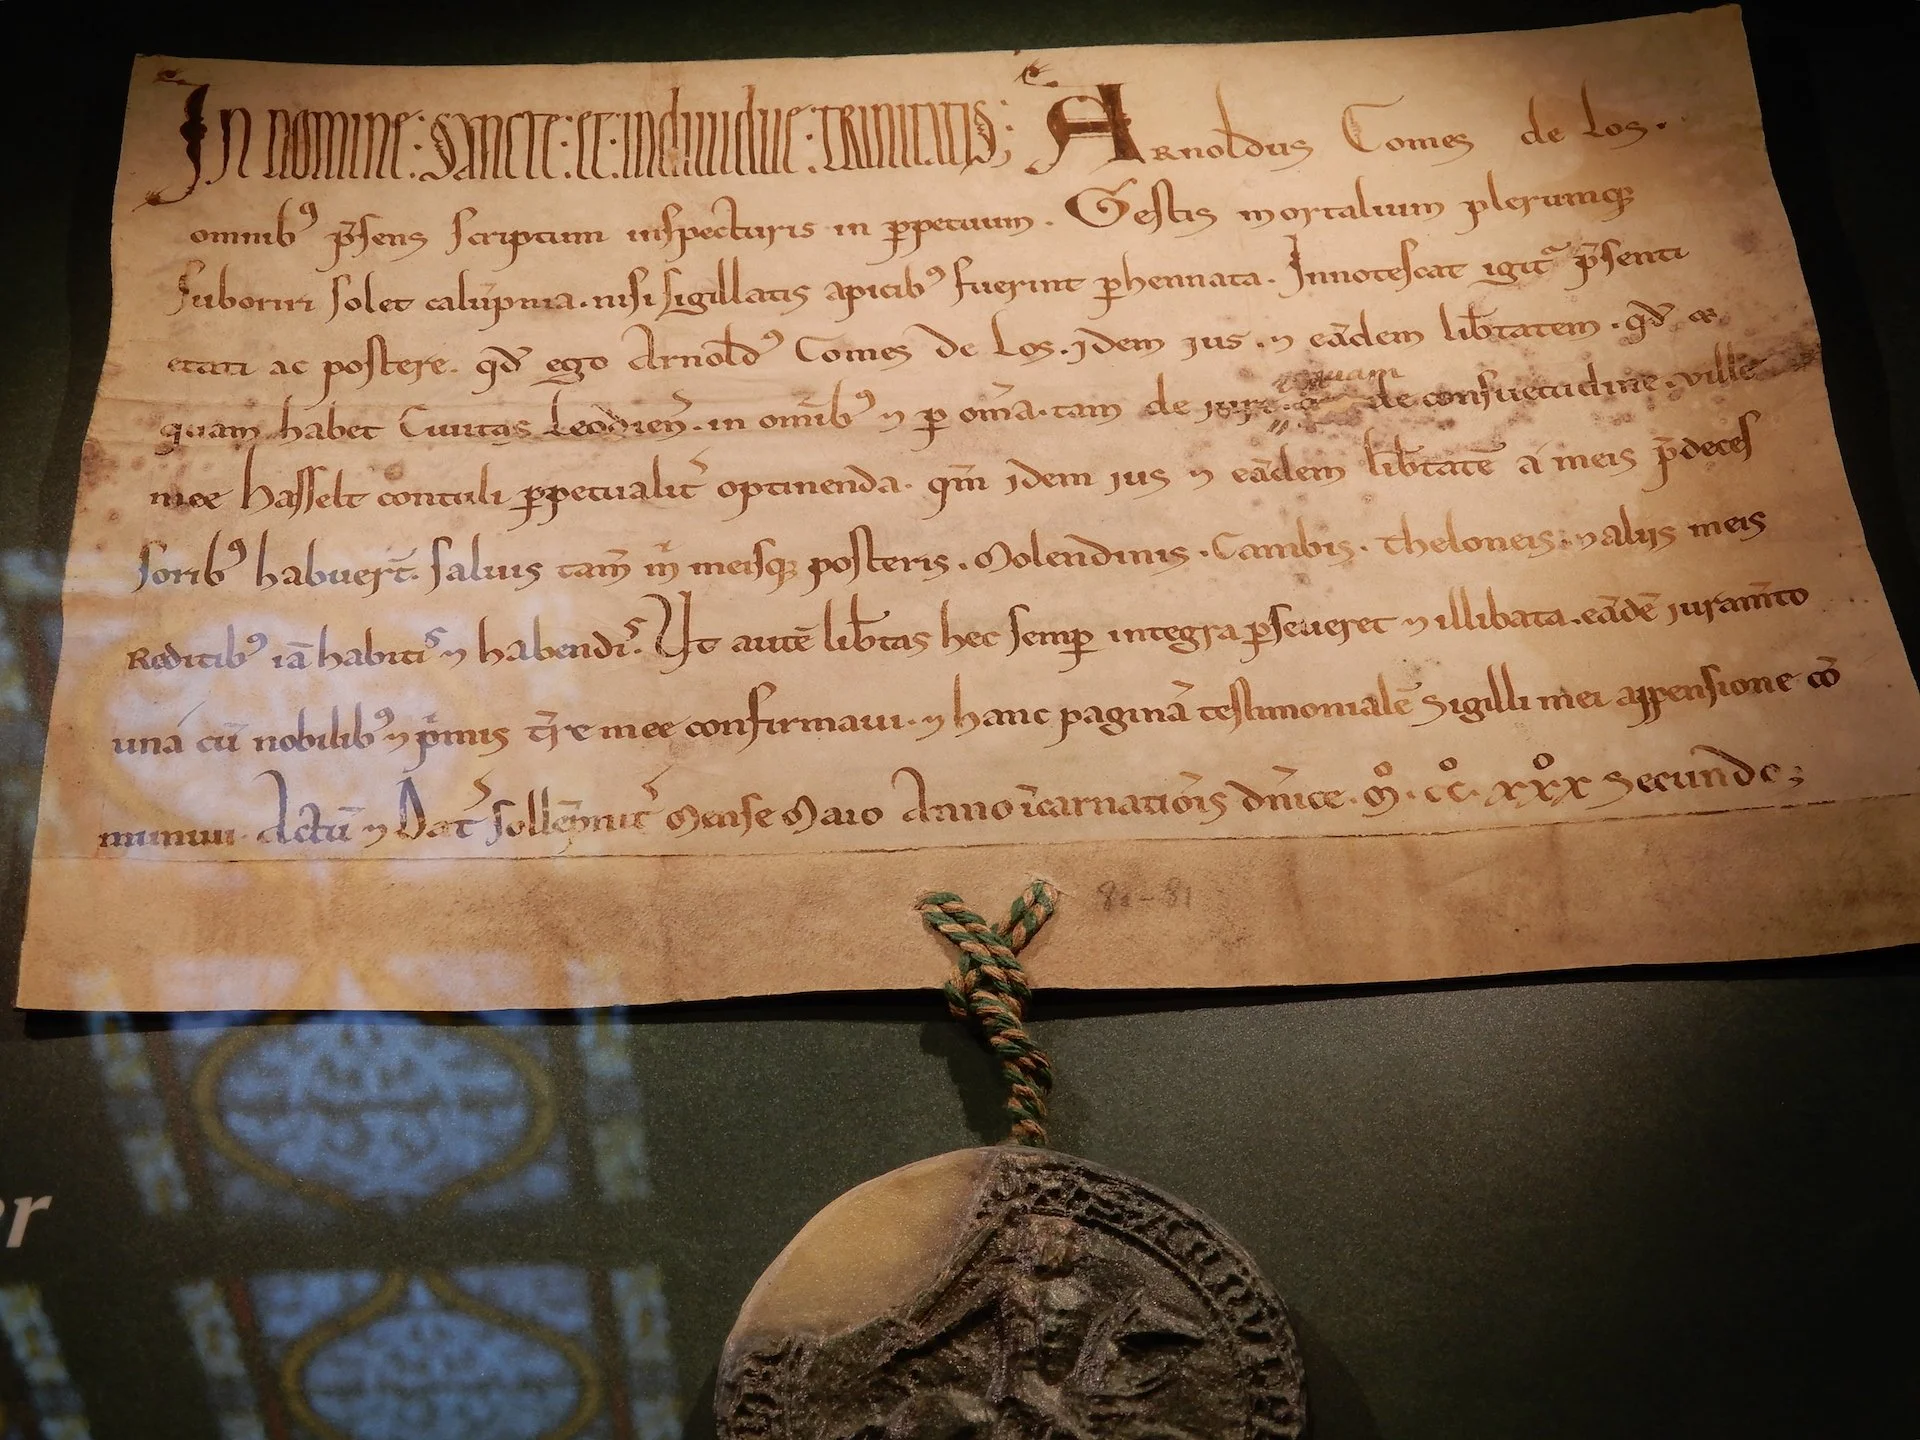 In nomine: sancte: et: indiuidue: trinitatis; Arnoldus Comes de Los.
omnibꝰ p̄sens scriptum inspecturis in ꝑpetuum. Gestis mortalium plerumqꝫ
suboriri solet calūpnia. nisi sigillatis apicibꝰ fuerint ꝑhennata. Innotescat igit᷑ p̄senti
etati ac postere. qđ ego Arnold᷒ Comes de Los. jdem jus. ⁊ eādem lib̄tatem. qđ
quam habet Ciuitas Leodien̄. in om̄ibꝰ ⁊ ꝑ om̄a. tam de jure. quam de consuetudine. ville
mee Hasselt contuli ꝑpetualit᷑ optinenda. qm̄ jdem jus ⁊ eādem lib̄tatē a meis p̄deces
soribꝰ habuer̄t. saluis tam̄ m̄ meisqꝫ posteris. Molendinis. Cambis. theloneis. ⁊ alijs meis
Reditibꝰ iā habitis ⁊ habendis. Ut autē lib̄tas hec semꝑ integra ꝑseueret ⁊ illibata. eādē juram̄to
una cū nobilibꝰ ⁊ p̄mis tr̄e mee confirmaui. ⁊ hanc paginā testimonialē Sigilli mei appensione cō
muniui. Actū ⁊ Dat᷑ sollēpnit᷑ Mense Maio Anno īcarnatiōis dn̄ice. Mº. CCº. XXXº Secundo;
81-81
er